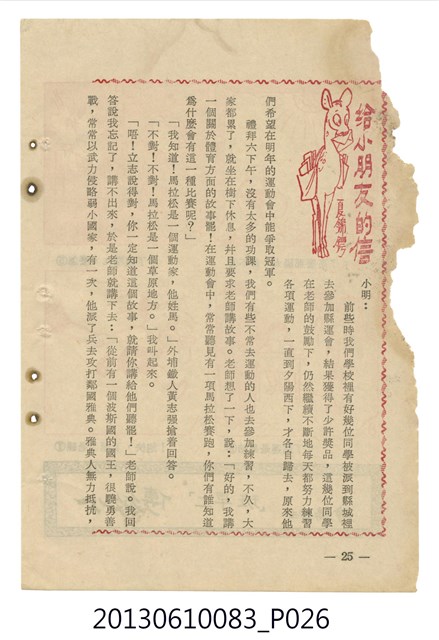 給小朋友的信
夏鐵錚
小明：
前些時我們學校裡有好幾位同學被派到縣城裡
去參加縣運會，結果獲得了少許獎品，這幾位同學
在老師的鼓勵下，仍然繼續不斷地每天都努力練習
各項運動，一直到夕陽西下，才各自歸去，原來他
們希望在明年的運動會中能爭取冠軍。
禮拜六下午，沒有太多的功課，我們有些不常去運動的人也去參加練習，不久，大
家都累了，就坐在樹下休息，幷且要求老師講故事。老師想了一下，說：「好的，我講
一個關於體育方面的故事罷！在運動會中，常常聽見有一項馬拉松賽跑，你們有誰知道
爲什麼會有這一種比賽呢？」
「我知道！馬拉松是一個運動家，他姓馬。」外埔鐵人黃志強搶着回答。
「不對！不對！馬拉松是一個草原地方。」我叫起來。
「唔！立志說得對，你一定知道這個故事，就請你講給他們聽罷！」老師說。我回
答說我忘記了，講不出來，於是老師就講下去：「從前有一個波斯國的國王，很驍勇善
戰，常常以武力侵略弱小國家，有一次，他派了兵去攻打鄰國雅典。雅典人無力抵抗，
— 25 —
20130610083_P026